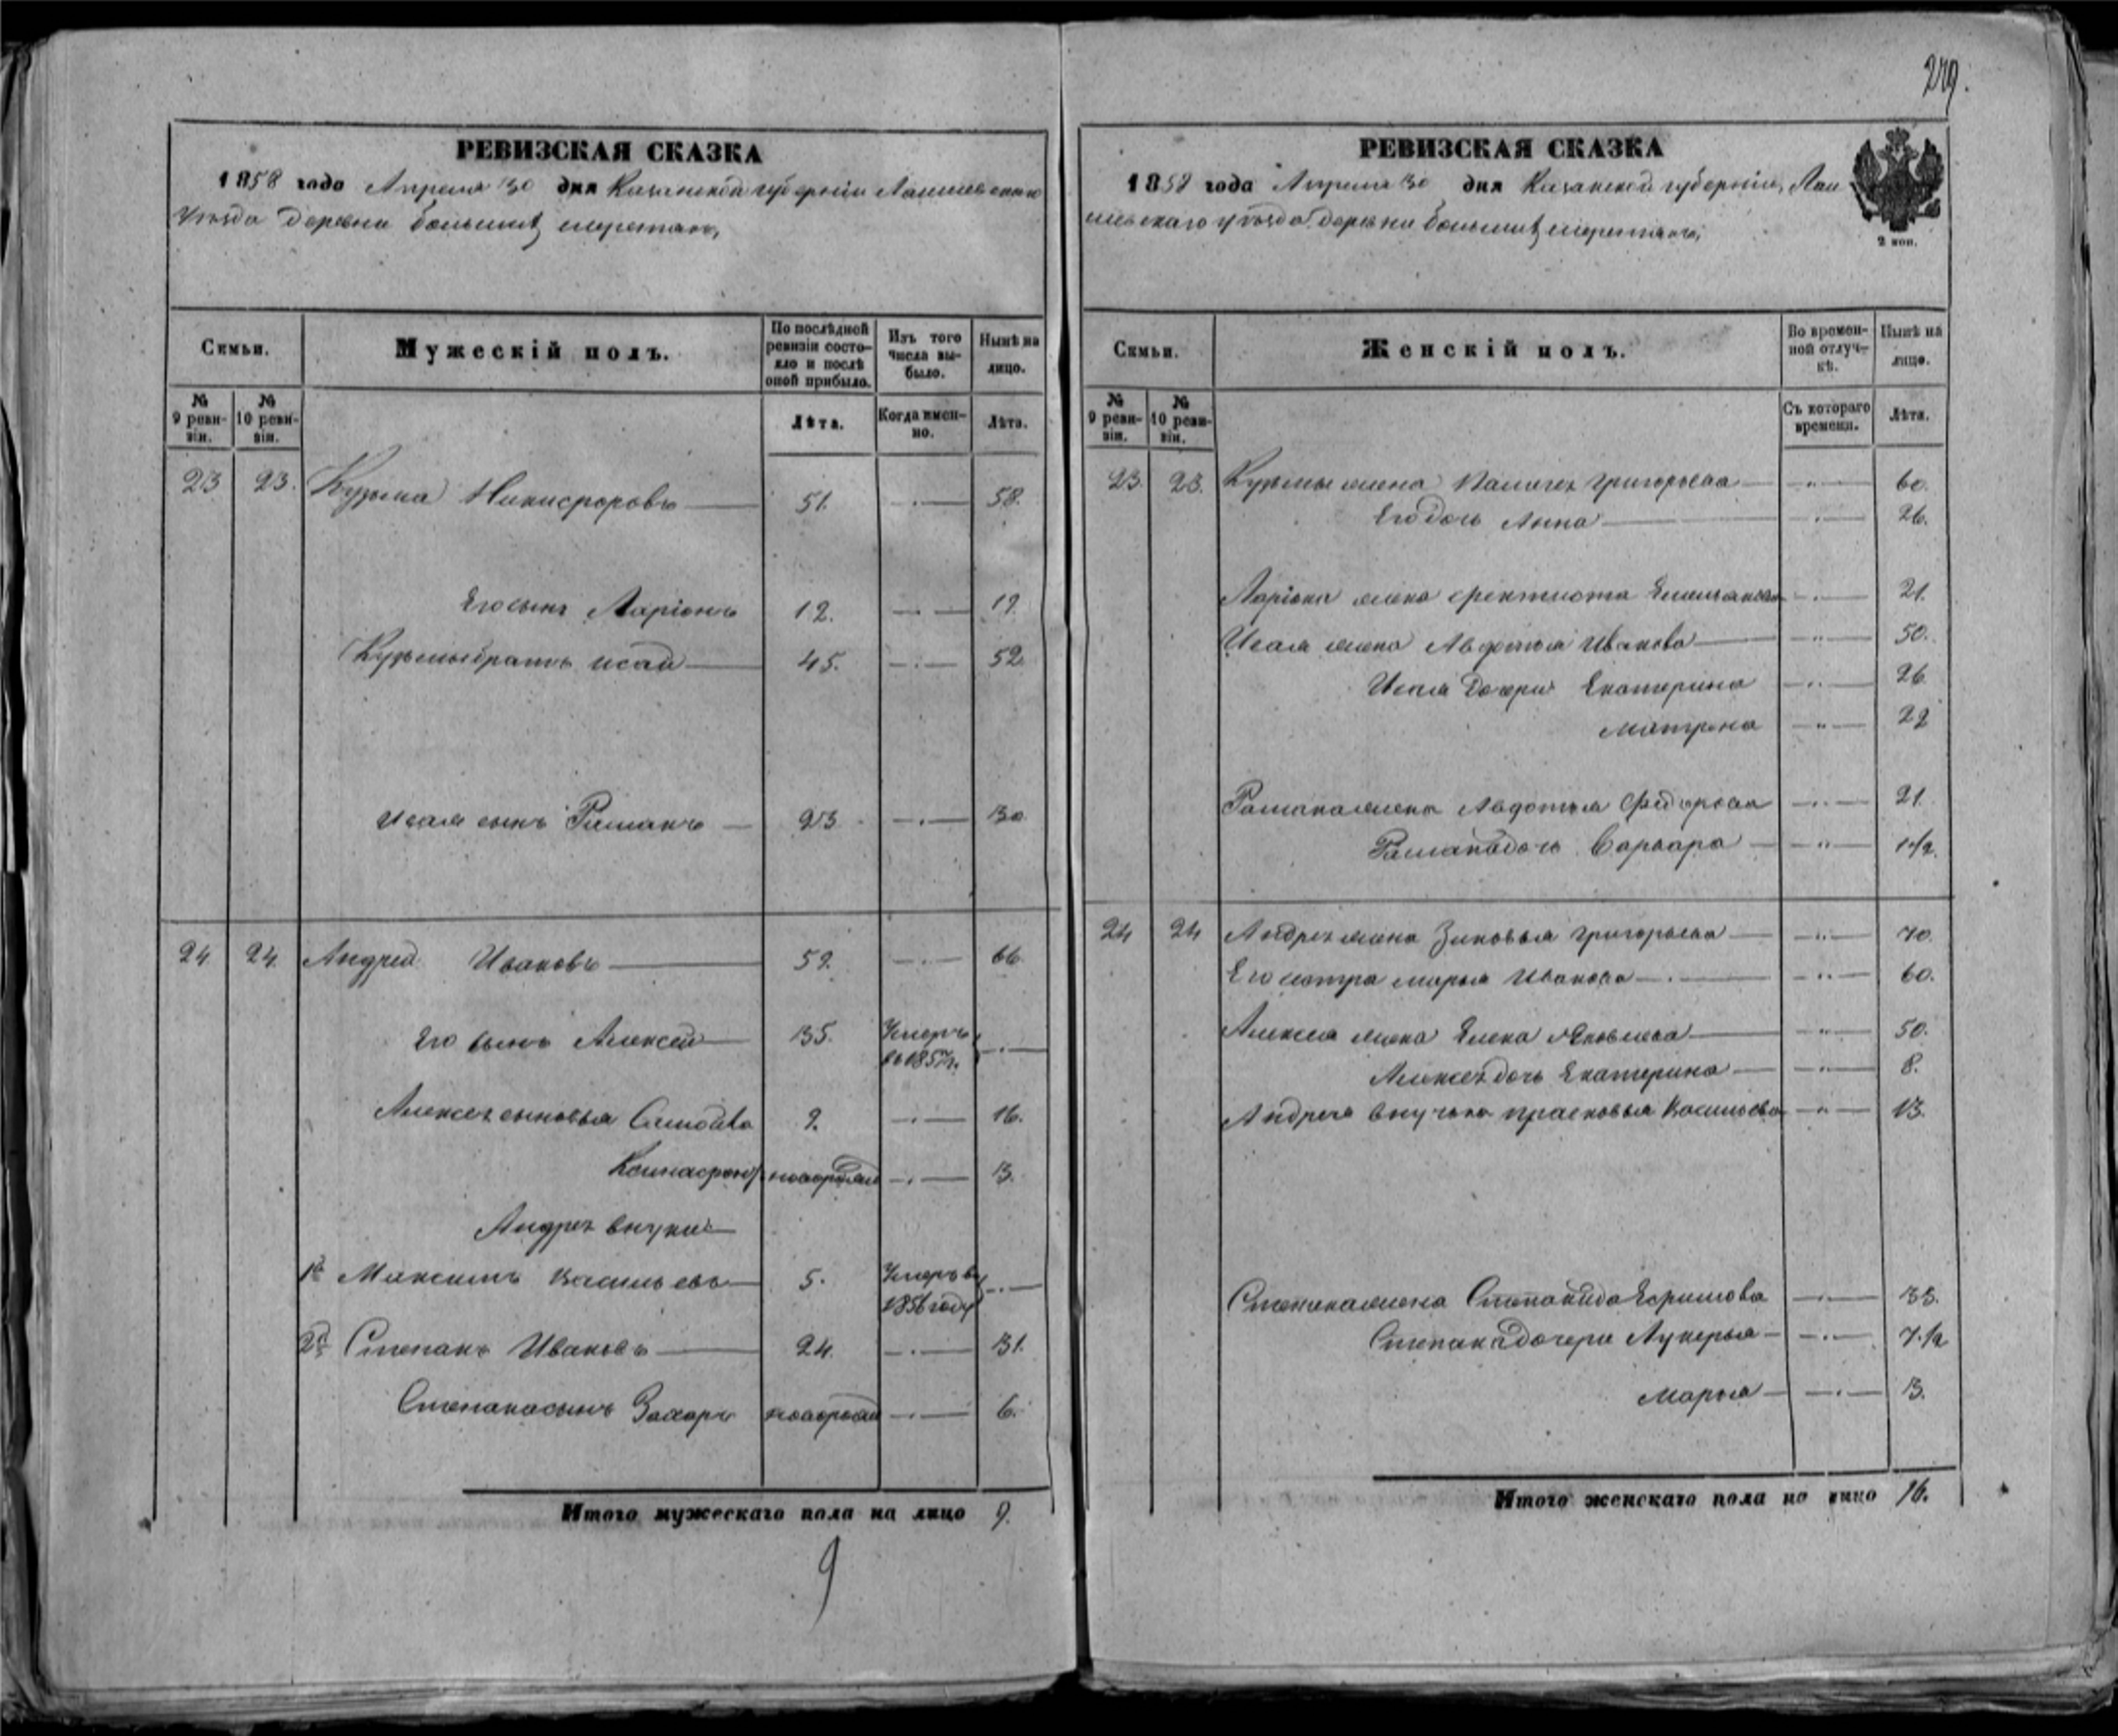 279.
РЕВИЗСКАЯ СКАЗКА
1858 года Апреля 30 дня Казанской губернии Лаишевскаго
Уѣзда деревни большихъ
Семьи.
Мужескій полъ.
По послѣдней ревизіи состояло и послѣ оной прибыло.
Изъ того числа выбыло.
Нынѣ на лицо.
№ 9 ревизіи.
№ 10 ревизіи.
Лѣта.
Когда именно.
Лѣта.
23 23. Кузьма Никифоровъ 51. 58.
Его сынъ Ларіонъ 12. 19.
Кузьмы братъ Исай 45. 52.
Исая сынъ Романъ 23. 30
24 24. Андрей Ивановъ 59. 66
Его сынъ Алексей 35. Умеръ въ 1857 г.
Алексея сыновья 9. 16.
новорожден 3.
Андрея внуки
1й Максимъ Васильевъ 5. Умеръ въ 1856 году
2й Степанъ Ивановъ 24. 31.
Степана сынъ Захаръ новорожден 6.
Итого мужескаго пола на лицо 9.
9
РЕВИЗСКАЯ СКАЗКА
1858 года Апреля 30 дня Казанской губерніи, Лаи
шевскаго уѣзда деревни большихъ
2 коп.
Семьи.
Женскій полъ.
Во временной отлучкѣ.
Нынѣ на лицо.
№ 9 ревизіи.
№ 10 ревизіи.
Съ котораго времени.
Лѣта.
23. 23. Кузьмы жена Григорьева 60.
Его дочь Анна 26.
Ларіона жена Фектиста Емельянова 21.
Исая жена Авдотья Иванова 50.
Исая дочери Екатерина 26
Матрена 22
Романа жена Авдотья Федорова 21.
Романа дочь Варвара 1 1/2.
24 24 Андрея жена Зиновья Григорьева 70.
Его сестра Марья Иванова 60.
Алексея жена Елена Яковлева 50.
Алексея дочь Екатерина 8.
Андрея внучька Прасковья Васильева 13.
Степана жена Степанида Ефимова 33.
Степана дочери Лукерья 7 1/2
Марья 3.
Итого женскаго пола на лицо 16.